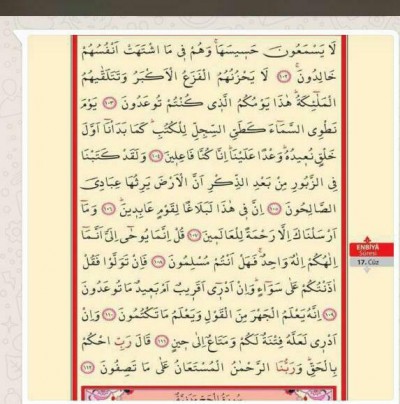 لَا يَسْمَعُونَ حَسِيسَهَاۚ وَهُمْ فِى مَا اشْتَهَتْ اَنْفُسُهُمْ
خَالِدُونَۚ ﴿١٠٢﴾ لَا يَحْزُنُهُمُ الْفَزَعُ الْاَكْبَرُ وَتَتَلَقّٰيهُمُ
الْمَلٰٓئِكَةُۜ هٰذَا يَوْمُكُمُ الَّذِى كُنْتُمْ تُوعَدُونَ ﴿١٠٣﴾ يَوْمَ
نَطْوِى السَّمَٓاءَ كَطَىِّ السِّجِلِّ لِلْكُتُبِۜ كَمَا بَدَأْنَٓا اَوَّلَ
خَلْقٍ نُعِيدُهُۜ وَعْدًا عَلَيْنَاۜ اِنَّا كُنَّا فَاعِلِينَ ﴿١٠٤﴾ وَلَقَدْ كَتَبْنَا
فِى الزَّبُورِ مِنْ بَعْدِ الذِّكْرِ اَنَّ الْاَرْضَ يَرِثُهَا عِبَادِىَ
الصَّالِحُونَ ﴿١٠٥﴾ اِنَّ فِى هٰذَا لَبَلَاغًا لِقَوْمٍ عَابِدِينَۜ ﴿١٠٦﴾ وَمَٓا
اَرْسَلْنَاكَ اِلَّا رَحْمَةً لِلْعَالَمِينَ ﴿١٠٧﴾ قُلْ اِنَّمَا يُوحٰٓى اِلَىَّ اَنَّمَٓا
اِلٰهُكُمْ اِلٰهٌ وَاحِدٌۚ فَهَلْ اَنْتُمْ مُسْلِمُونَ ﴿١٠٨﴾ فَاِنْ تَوَلَّوْا فَقُلْ
اٰذَنْتُكُمْ عَلٰى سَوَٓاءٍۜ وَاِنْ اَدْرِٓى اَقَرِيبٌ اَمْ بَعِيدٌ مَا تُوعَدُونَ
﴿١٠٩﴾ اِنَّهُ يَعْلَمُ الْجَهْرَ مِنَ الْقَوْلِ وَيَعْلَمُ مَا تَكْتُمُونَ ﴿١١٠﴾ وَاِنْ
اَدْرِى لَعَلَّهُ فِتْنَةٌ لَكُمْ وَمَتَاعٌ اِلٰى حِينٍ ﴿١١١﴾ قَالَ رَبِّ احْكُمْ
بِالْحَقِّۜ وَرَبُّنَا الرَّحْمٰنُ الْمُسْتَعَانُ عَلٰى مَا تَصِفُونَ ﴿١١٢﴾
ENBİYÂ
Sûresi
17. Cüz